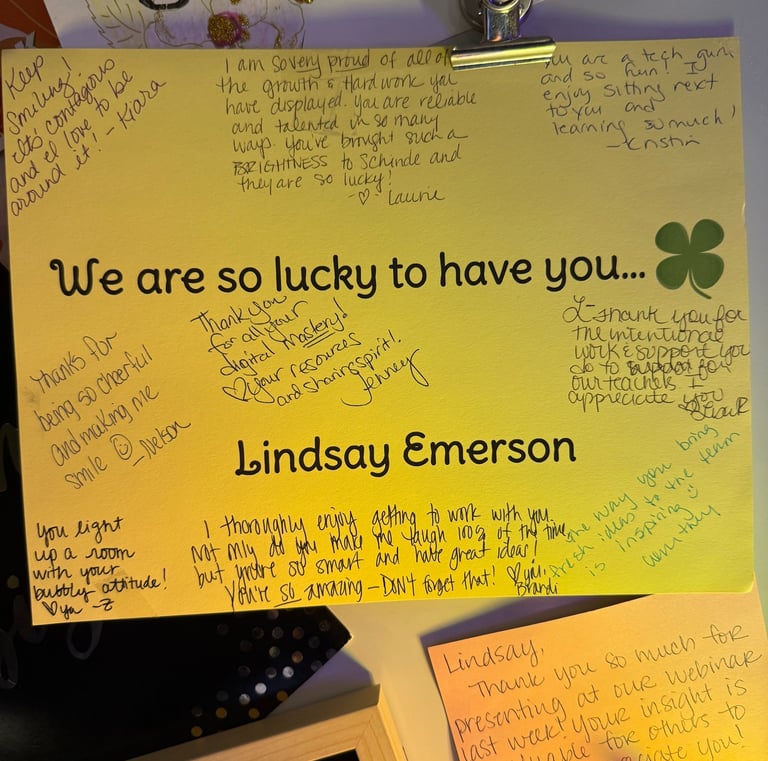 Keep
Smiling!
It's contagious
and I love to be
around it! - Kiara
I am so very proud of all of
the growth & Hard work you
have displayed. You are reliable
and talented in so many
ways. You've brought such a
BRIGHTNESS to Schinde and
they are so lucky!
-♡- Laurie
you are a tech guru
and so fun! I
enjoy sitting next
to you and
learning so much!
We are so lucky to have you...
Thank you
for all your
digital mastery!
♡ your resources
and sharing spirit!
Jenney
L-Thank you for
the intentional
work & support you
do to support for
our teachers I
appreciate you
Thanks for
being so cheerful
and making me
smile ☺ - Nelson
Lindsay Emerson
You light
up a room
with your
bubbly attitude!
♡ya -Z
I thoroughly enjoy getting to work with you.
Not only do you make me laugh 100% of the time,
but you're so smart and have great ideas!
You're so amazing - DON'T forget that! ♡ you,
Brandi
The way you bring
fresh ideas to the team
is inspiring ☺
Lindsay,
Thank you so much for
presenting at our webinar
last week! Your insight is
for others to
you!